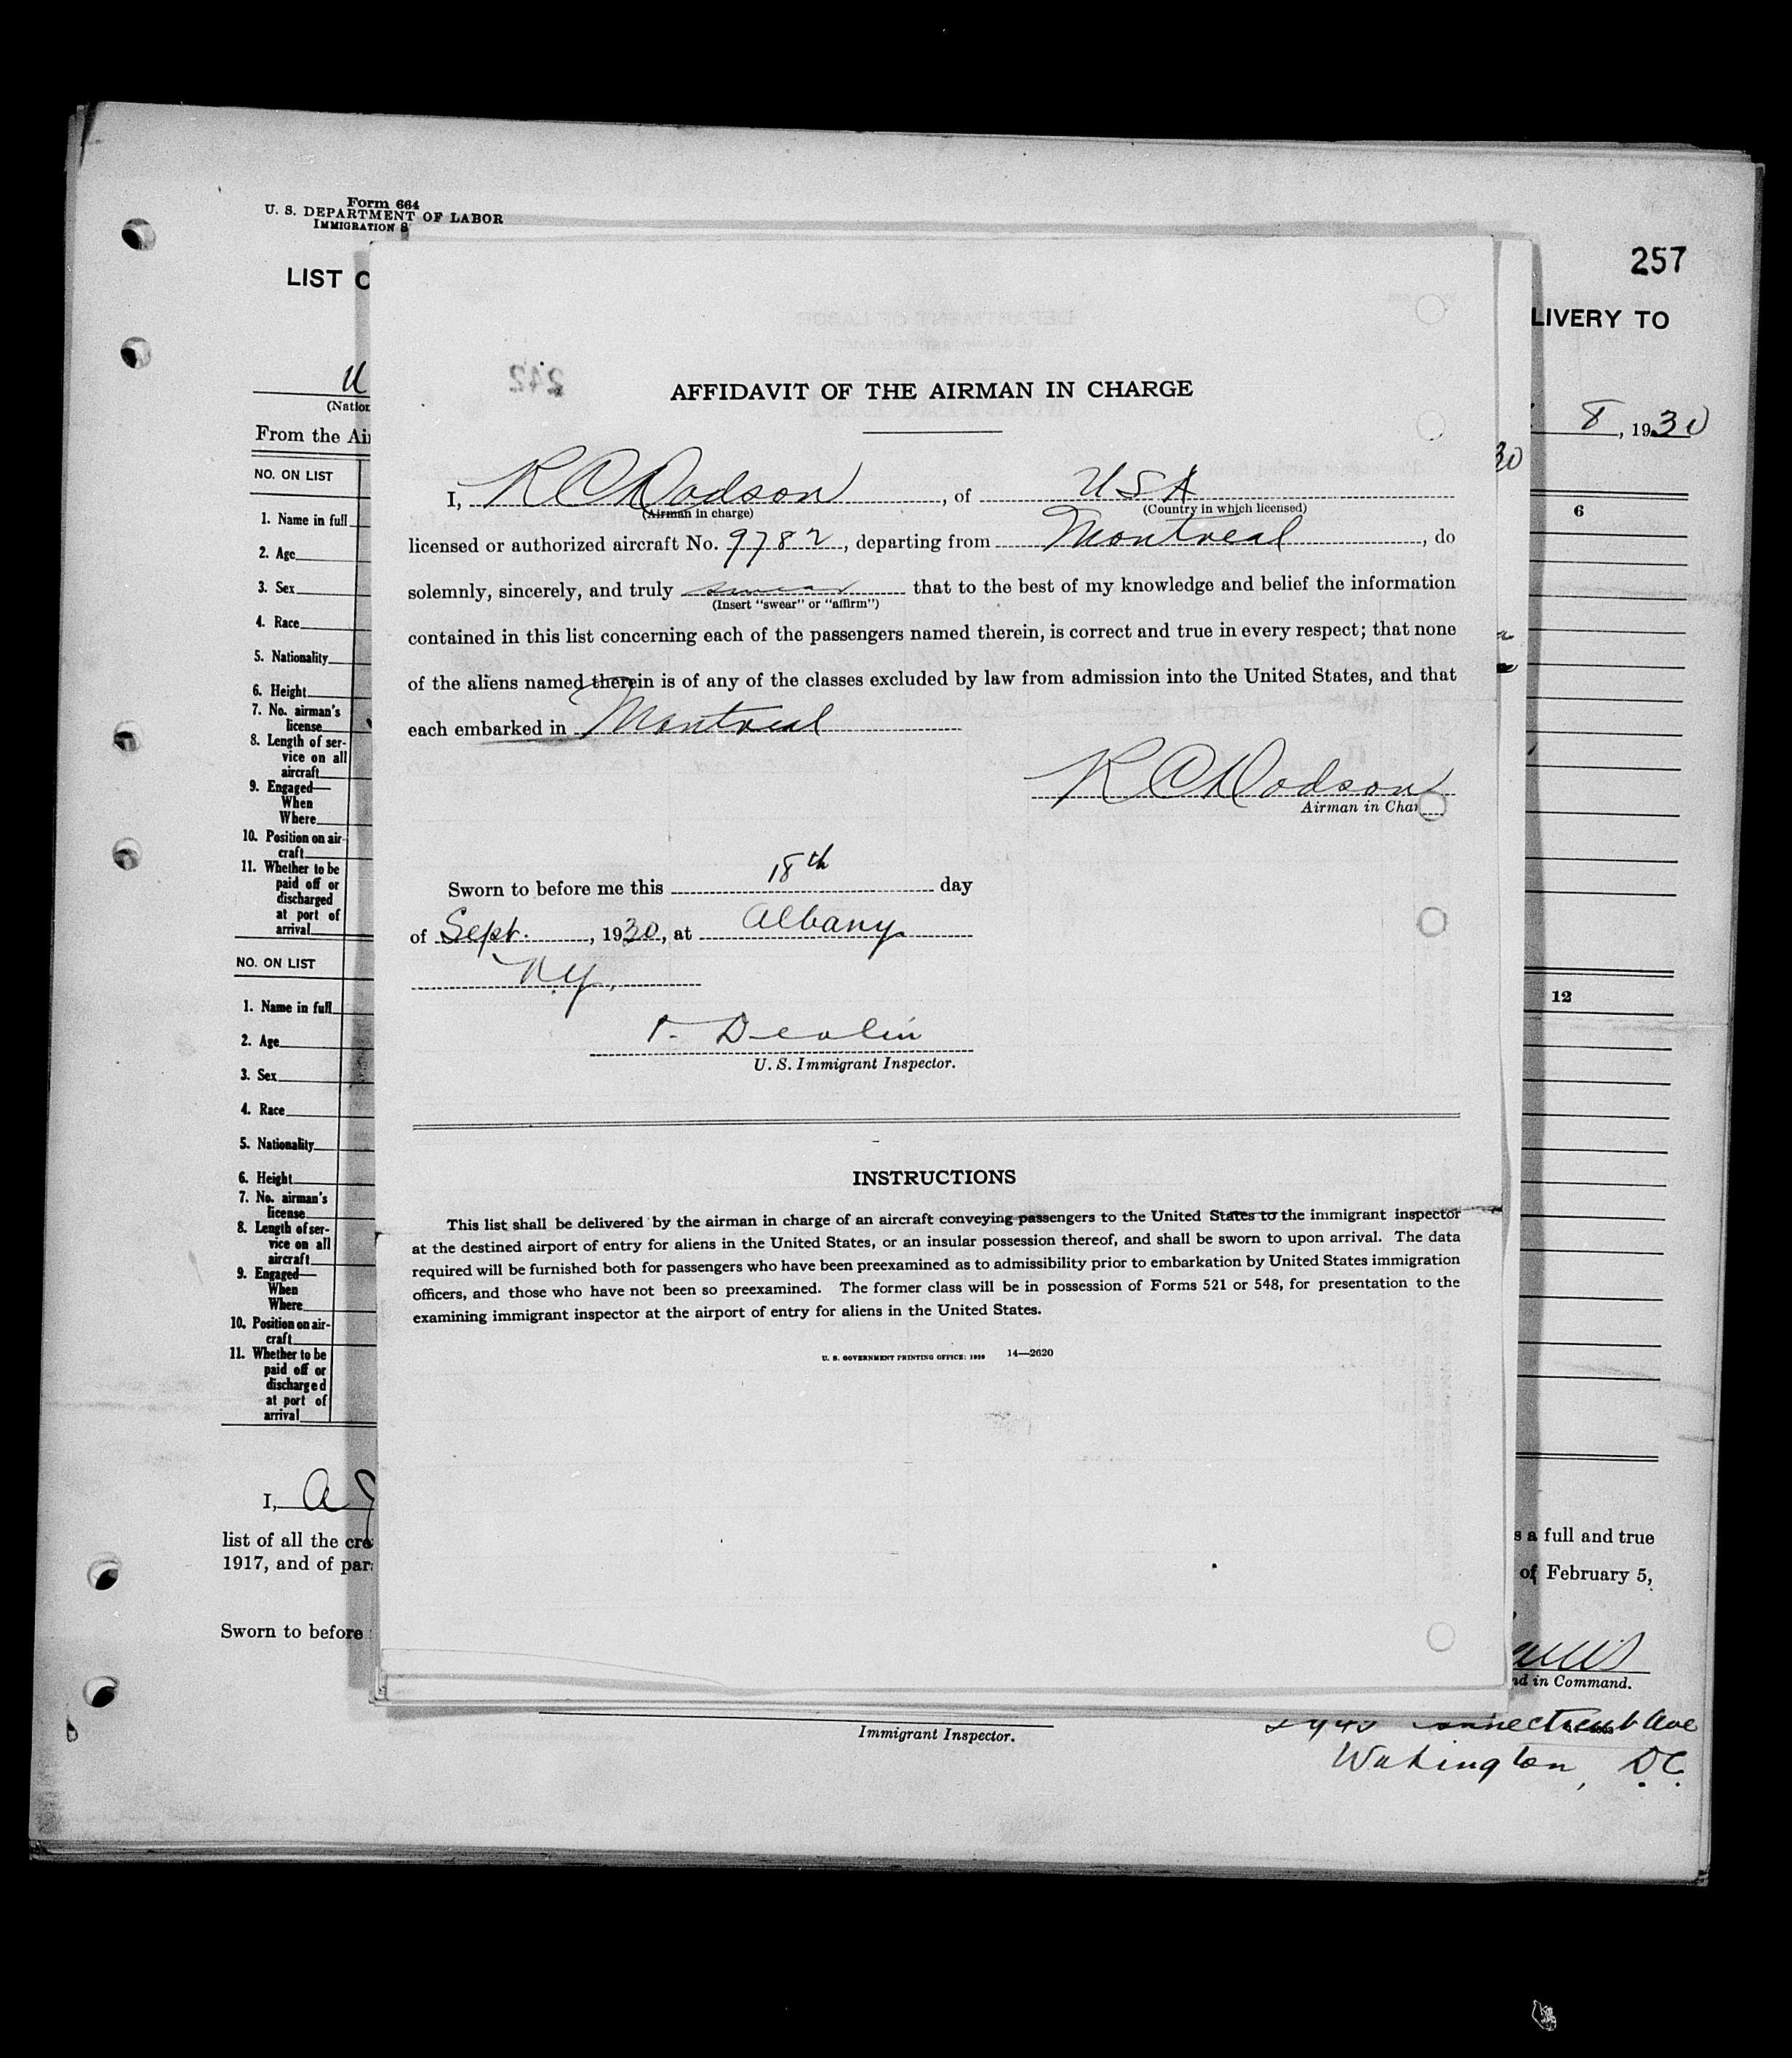 Form 664
U. S. DEPARTMENT OF LABOR
IMMIGRATION S
257
LIST O
LIVERY TO
U
(Nation
From the Air
8, 1930
30
NO. ON LIST
6
1. Name in full
2. Age
3. Sex
4. Race
5. Nationality
6. Height
7. No. airman's
license
8. Length of ser-
vice on all
aircraft
9. Engaged—
When
Where
10. Position on air-
craft
11. Whether to be
paid off or
discharged
at port of
arrival
NO. ON LIST
12
1. Name in full
2. Age
3. Sex
4. Race
5. Nationality
6. Height
7. No. airman's
license
8. Length of ser-
vice on all
aircraft
9. Engaged—
When
Where
10. Position on air-
craft
11. Whether to be
paid off or
discharged
at port of
arrival
I, A
list of all the cre
s a full and true
1917, and of par
of February 5,
Sworn to before
nd in Command.
Immigrant Inspector.
Connecticut Ave
Wahington, D.C.
242
AFFIDAVIT OF THE AIRMAN IN CHARGE
I, R C Dodson, of USA
(Airman in charge) (Country in which licensed)
licensed or authorized aircraft No. 9782, departing from Montreal, do
solemnly, sincerely, and truly swear that to the best of my knowledge and belief the information
(Insert "swear" or "affirm")
contained in this list concerning each of the passengers named therein, is correct and true in every respect; that none
of the aliens named therein is of any of the classes excluded by law from admission into the United States, and that
each embarked in Montreal
R C Dodson
Airman in Char
Sworn to before me this 18th day
of Sept., 1930, at Albany
N.Y.
Devlin
U. S. Immigrant Inspector.
INSTRUCTIONS
This list shall be delivered by the airman in charge of an aircraft conveying passengers to the United States to the immigrant inspector
at the destined airport of entry for aliens in the United States, or an insular possession thereof, and shall be sworn to upon arrival. The data
required will be furnished both for passengers who have been preexamined as to admissibility prior to embarkation by United States immigration
officers, and those who have not been so preexamined. The former class will be in possession of Forms 521 or 548, for presentation to the
examining immigrant inspector at the airport of entry for aliens in the United States.
U. S. GOVERNMENT PRINTING OFFICE: 14—2620